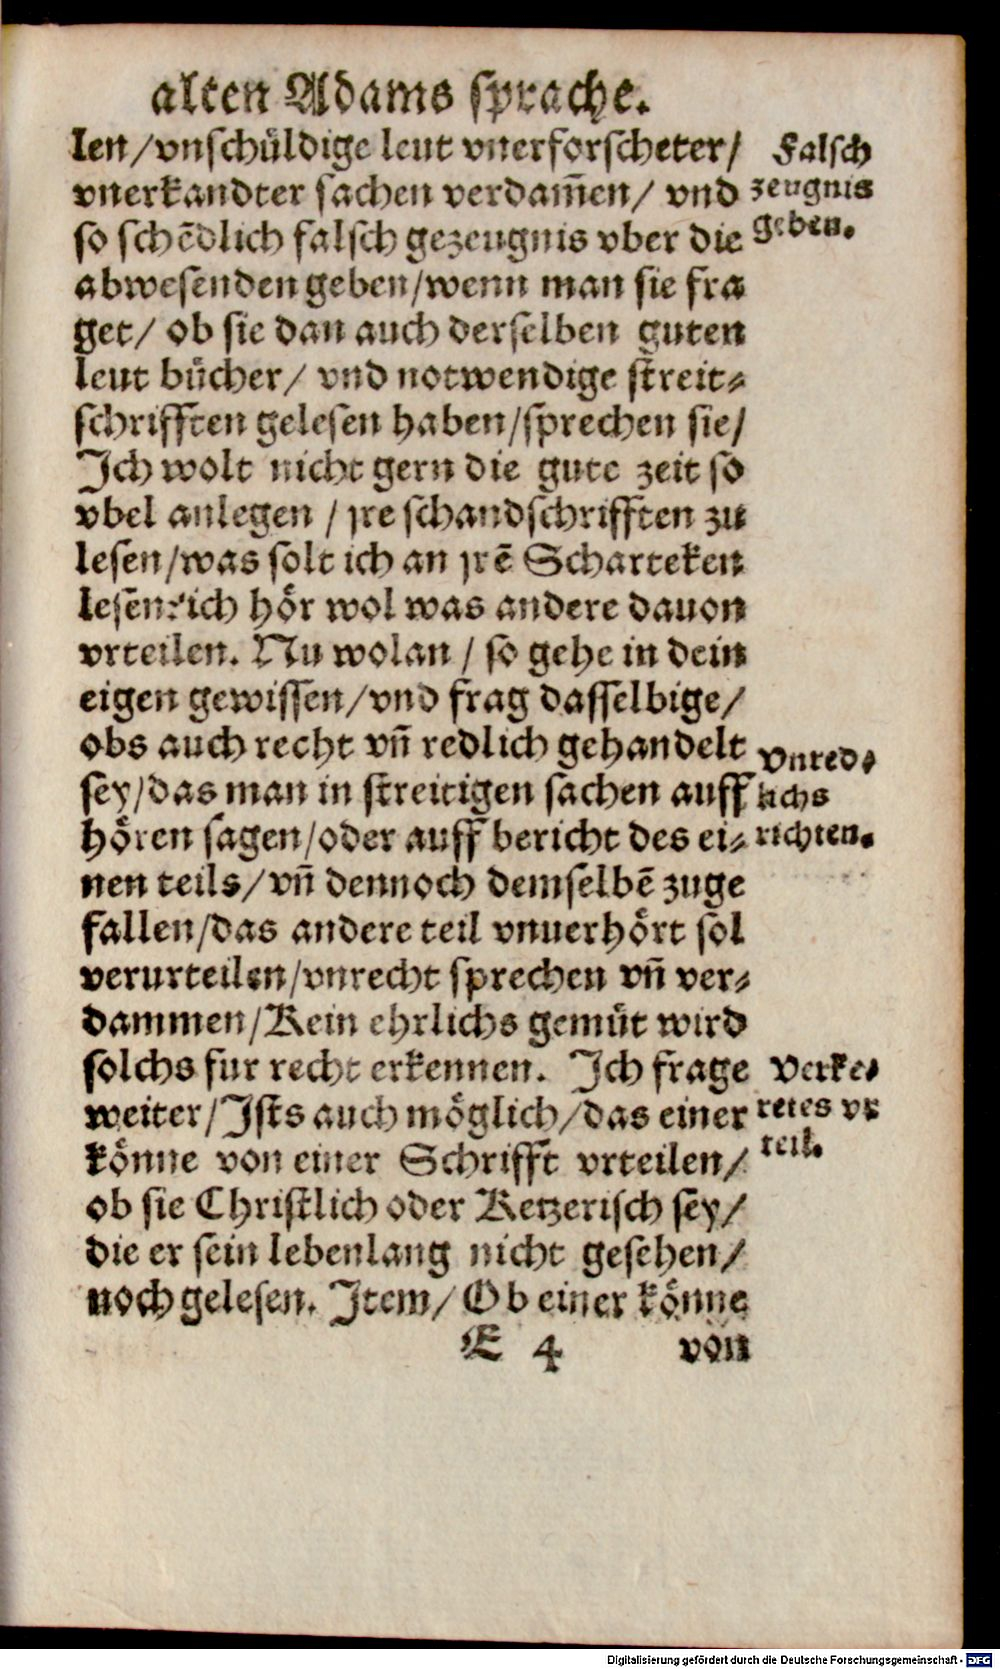 alten Adams sprache.
len/vnschüldige leut vnerforscheter/
vnerkandter sachen verdam̄en/ vnd
so schēdlich falsch gezeugnis vber die
abwesenden geben/wenn man sie fra
get/ ob sie dan auch derselben guten
leut bücher/ vnd notwendige streit⸗
schrifften gelesen haben/sprechen sie/
Ich wolt nicht gern die gute zeit so
vbel anlegen / jre schandschrifften zu
lesen/was solt ich an jrē Scharteken
lesen? ich hör wol was andere dauon
vrteilen. Nu wolan / so gehe in dein
eigen gewissen/vnd frag dasselbige/
obs auch recht vn̄ redlich gehandelt
sey/das man in streitigen sachen auff
hören sagen/oder auff bericht des ei⸗
nen teils/vn̄ dennoch demselbē zuge
fallen/das andere teil vnuerhört sol
verurteilen/vnrecht sprechen vn̄ ver⸗
dammen/Kein ehrlichs gemüt wird
solchs fur recht erkennen. Ich frage
weiter/Ists auch möglich/das einer
könne von einer Schrifft vrteilen/
ob sie Christlich oder Ketzerisch sey/
die er sein lebenlang nicht gesehen/
noch gelesen. Item/ Ob einer könne
E 4 von
Falsch
zeugnis
geben.
Vnred⸗
lichs
richten.
Verke⸗
retes vr
teil.
Digitalisierung gefördert durch die Deutsche Forschungsgemeinschaft - DFG